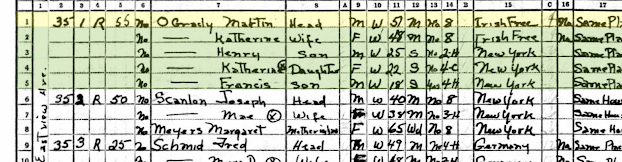 1 2 3 4 5 6 7 8 9 10 11 12 13 14 15 C 16 17
1 35 1 R 55 No O Grady Martin Head M W 51 M No 8 Irish Free No Same Pla
2 No — Katherine Wife F W 48 M No 8 Irish Free Same Pla
3 No — Henry Son M W 25 S No New York Same Pla
4 No — Katherine Daughter F W 22 S No New York Same Pla
5 No — Francis Son M W 18 S New York Same Pla
6 35 2 R 50 No Scanlon Joseph Head M W 40 M No 8 New York Same Hou
7 No — Mae Wife F W 38 M No New York Same Hou
8 No Meyers Margaret F W 65 Wd No 8 New York Same Hou
9 35 3 R 25 No Schmid Fred Head M W 49 M No Germany Na Same Pla
10
East view Ave.